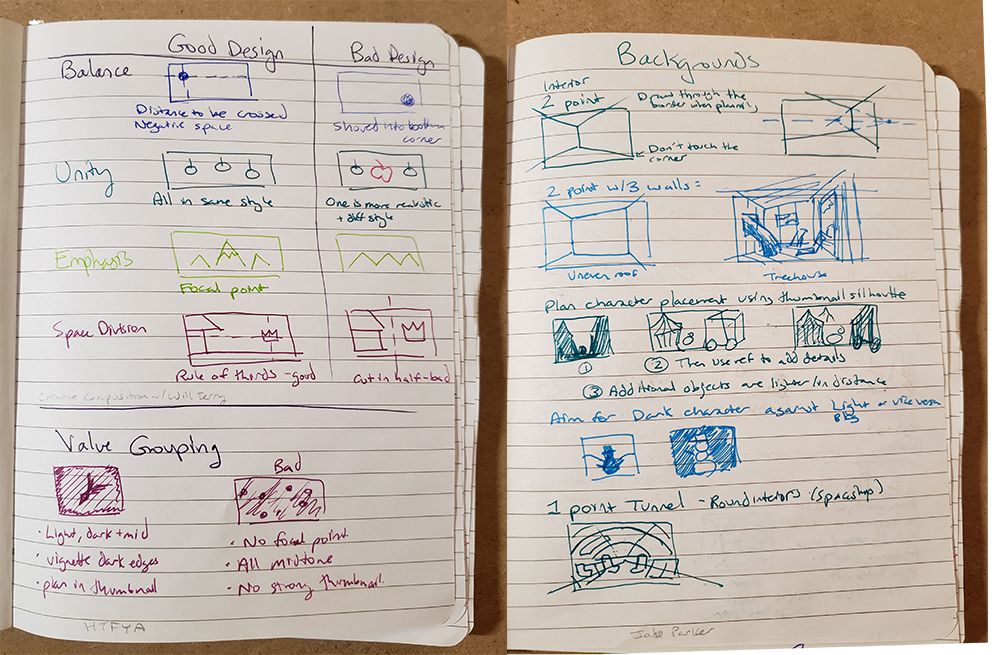 Good Design
Bad Design
Balance
Distance to be crossed
Negative space
Shoved into bottom
corner
Unity
All in same style
One is more realistic
+ diff style
Emphasis
Focal point
Space Division
Rule of thirds - good
Cut in half - bad
Creative Composition w/ Will Terry
Value Grouping
Bad
• Light, dark + mid
• vignette dark edges
• plan in thumbnail
• No focal point
• All midtone
• No strong thumbnail.
HTFYA
Backgrounds
Interior
2 point
Draw through the
border when planning
Don't touch the
corner
2 point w/3 walls =
Uneven roof
Treehouse
Plan character placement using thumbnail silhoutte
①
② Then use ref to add details
③ Additional objects are lighter/in distance
Aim for Dark character against Light or vice versa
BKG
1 point Tunnel - Round interiors (spaceship)
Jake Parker